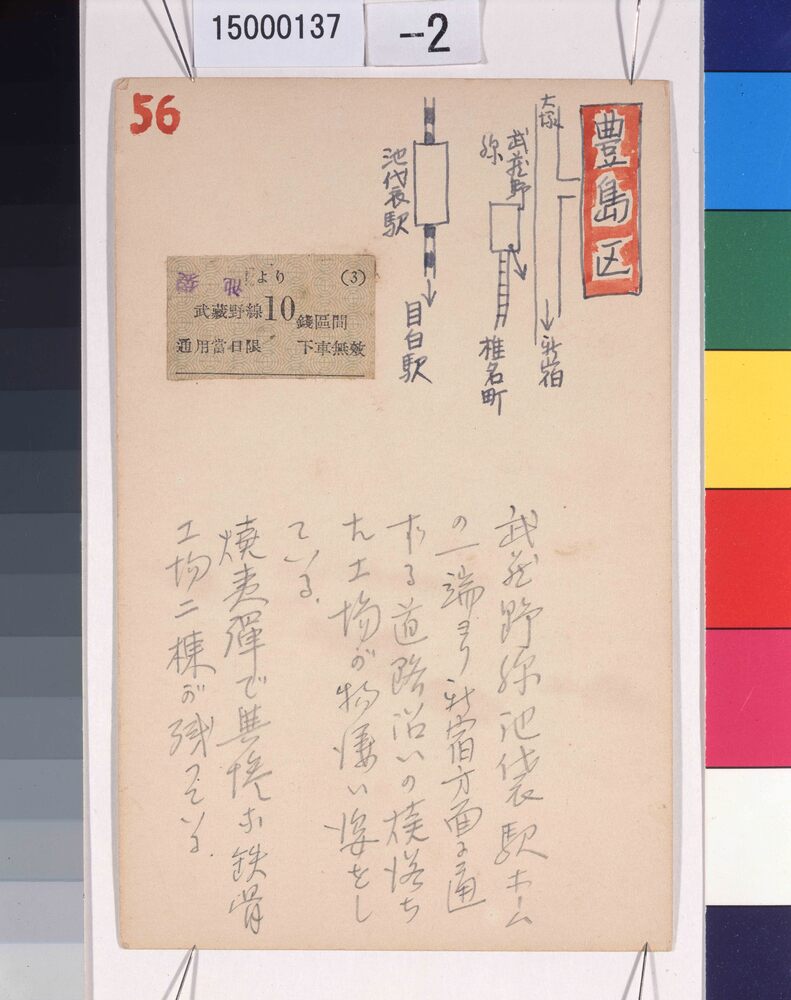 15000137
-2
56
豊島区
大塚
新宿
武蔵野
線
椎名町
池袋駅
目白駅
より (3)
武蔵野線10錢區間
通用當日限 下車無效
武蔵野線池袋駅ホーム
の一端より新宿方面に通
ずる道路沿いの焼落ち
た工場が物凄い姿をし
ている。
焼夷弾で無惨な鉄骨
工場二棟が残っている。